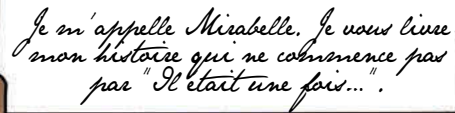 Je m'appelle Mirabelle. Je vous livre
mon histoire qui ne commence pas
par "Il était une fois...".